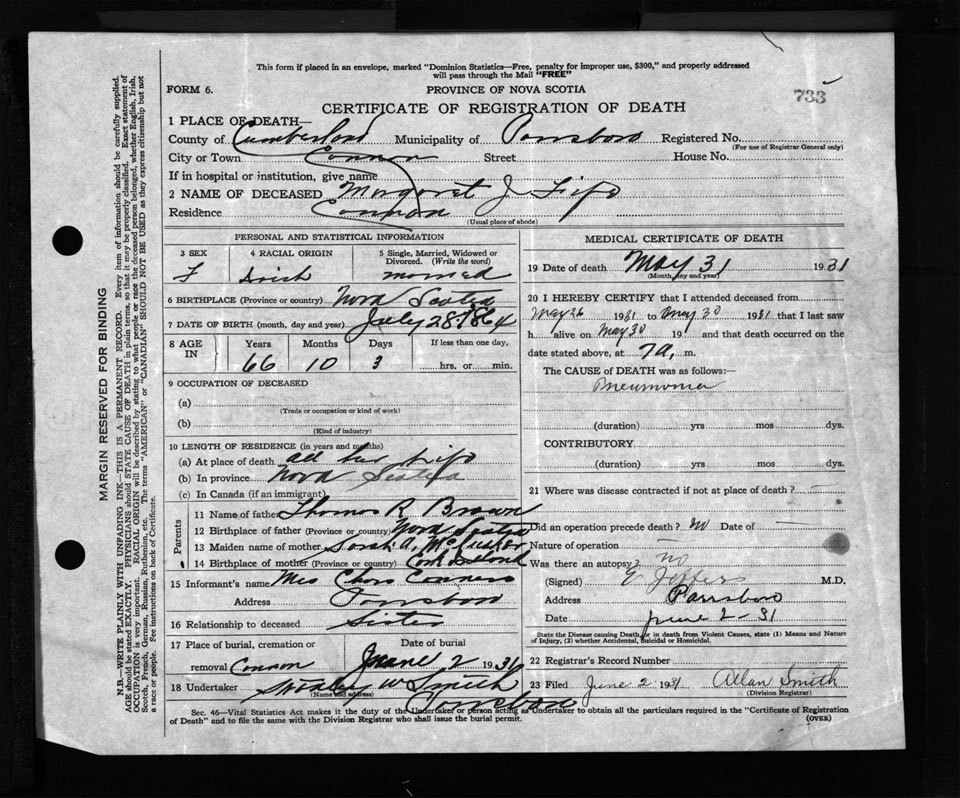 This form if placed in an envelope, marked "Dominion Statistics—Free, penalty for improper use, $300," and properly addressed
will pass through the Mail "FREE"
FORM 6.
PROVINCE OF NOVA SCOTIA
733
CERTIFICATE OF REGISTRATION OF DEATH
1 PLACE OF DEATH—
County of Cumberland Municipality of Parrsboro Registered No.
(For use of Registrar General only)
City or Town Street House No.
If in hospital or institution, give name
2 NAME OF DECEASED Margaret J Fife
Residence
(Usual place of abode)
PERSONAL AND STATISTICAL INFORMATION
3 SEX 4 RACIAL ORIGIN 5 Single, Married, Widowed or
Divorced. (Write the word)
F Irish married
6 BIRTHPLACE (Province or country) Nova Scotia
7 DATE OF BIRTH (month, day and year) July 28 1864
8 AGE IN Years Months Days If less than one day,
66 10 3 hrs. or min.
9 OCCUPATION OF DECEASED
(a)
(Trade or occupation or kind of work)
(b)
(Kind of industry)
10 LENGTH OF RESIDENCE (in years and months)
(a) At place of death all her life
(b) In province Nova Scotia
(c) In Canada (if an immigrant)
Parents
11 Name of father Thomas R Brown
12 Birthplace of father (Province or country) Nova Scotia
13 Maiden name of mother Sarah A.
14 Birthplace of mother (Province or country)
15 Informant's name Mrs Chas Conners
Address Parrsboro
16 Relationship to deceased Sister
17 Place of burial, cremation or Date of burial
removal June 2 1931
18 Undertaker W Smith
(Name and address)
Parrsboro
MEDICAL CERTIFICATE OF DEATH
19 Date of death May 31 1931
(Month, day and year)
20 I HEREBY CERTIFY that I attended deceased from
May 26 1931 to May 30 1931 that I last saw
h alive on May 30 19 and that death occurred on
date stated above, at 7 a, m.
The CAUSE of DEATH was as follows:—
Pneumonia
(duration) yrs mos dys.
CONTRIBUTORY
(duration) yrs mos dys.
21 Where was disease contracted if not at place of death?
Did an operation precede death? no Date of —
Nature of operation —
Was there an autopsy? no
(Signed) E Jeffers M.D.
Address Parrsboro
Date June 2-31
State the Disease causing Death, or in death from Violent Causes, state (1) Means and Nature
of Injury, (2) whether Accidental, Suicidal or Homicidal.
22 Registrar's Record Number
23 Filed June 2 1931 Allan Smith
(Division Registrar)
Sec. 46—Vital Statistics Act makes it the duty of the Undertaker or person acting as Undertaker to obtain all the particulars required in the "Certificate of Registration
of Death" and to file the same with the Division Registrar who shall issue the burial permit.
(OVER)
MARGIN RESERVED FOR BINDING
N.B.—WRITE PLAINLY WITH UNFADING INK—THIS IS A PERMANENT RECORD. Every item of information should be carefully supplied.
AGE should be stated EXACTLY. PHYSICIANS should state CAUSE OF DEATH in plain terms, so that it may be properly classified. Exact statement of
OCCUPATION is very important. RACIAL ORIGIN will be described by stating to what people or race the deceased person belonged, whether English, Irish,
Scotch, French, German, Russian, Ruthenian, etc. The terms "AMERICAN" or "CANADIAN" SHOULD NOT BE USED as they express citizenship but not
a race or people. See instructions on back of Certificate.